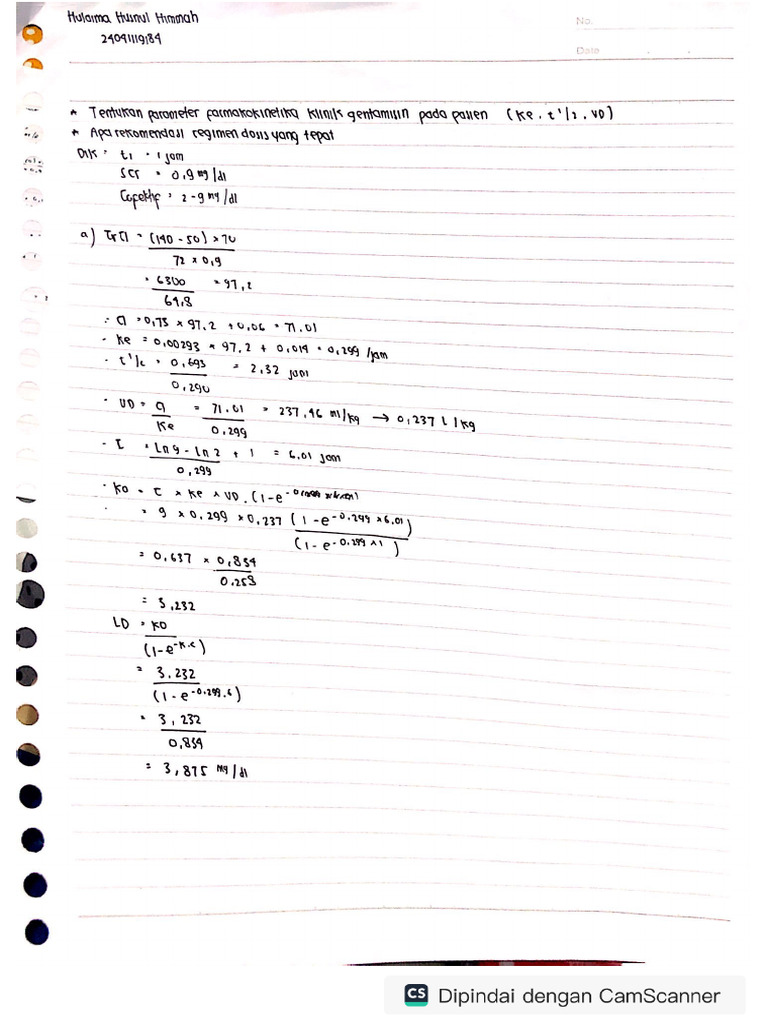 Hulaima Husnul Himmah
24041119184
No.
Date
* Tentukan parameter farmakokinetika klinis gentamisin pada pasien (Ke. t'/2. VD)
* Apa rekomendasi regimen dosis yang tepat
Dik = t1 = 1 jam
SCr = 0,9 mg/dl
Cefektif = 2-9 mg/dl
a) CrCl = (140 - 50) x 70
72 x 0,9
= 6300 = 97,2
64,8
· Cl = 0,75 x 97.2 + 0,06 = 71.01
· Ke = 0,00293 x 97.2 + 0,014 = 0,299 /jam
· t'/2 = 0,693 = 2,32 jam
0,290
· VD = Cl = 71.01 = 237,46 ml/kg → 0,237 L/kg
Ke 0,299
· τ = Ln 9 - Ln 2 + 1 = 6.01 jam
0,299
· K0 = C x Ke x VD. (1-e
= 9 x 0,299 x 0,237 (1-e-0.299 x 6.01)
(1-e-0.299 x 1)
= 0,637 x 0,834
0.258
= 3,232
LD = K0
(1-e-K.τ)
= 3.232
(1-e-0.299.6)
= 3,232
0,834
= 3,875 mg/dl
CS Dipindai dengan CamScanner